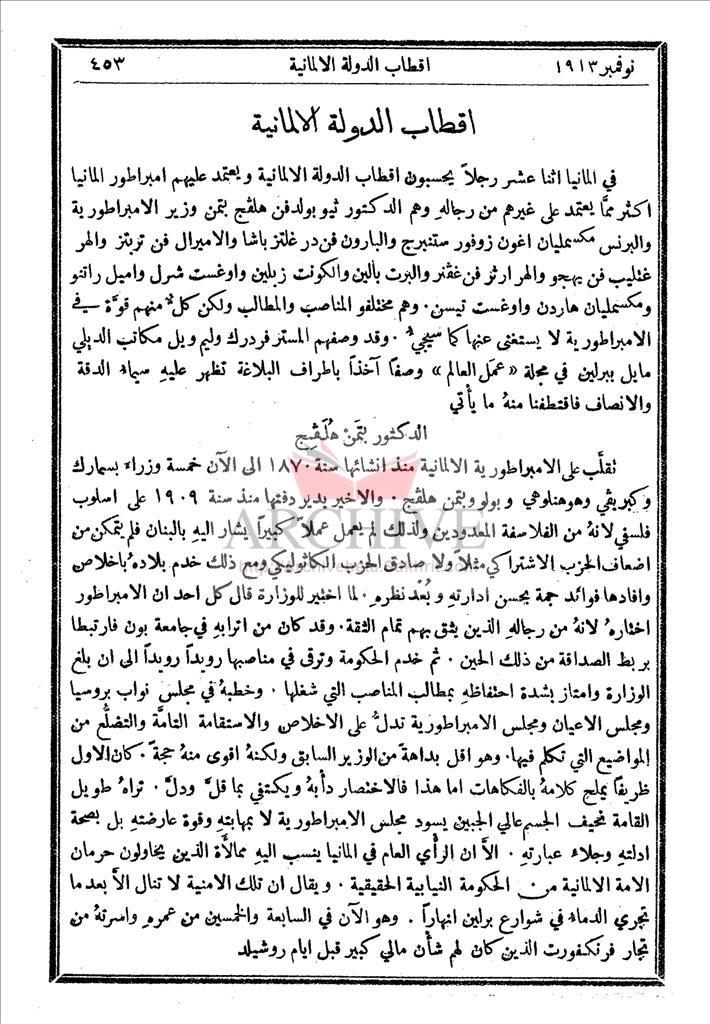 نوفمبر ١٩١٣ اقطاب الدولة الالمانية ٤٥٣
اقطاب الدولة الالمانية
في المانيا اثنا عشر رجلاً يحسبون اقطاب الدولة الالمانية ويعتمد عليهم امبراطور المانيا
اكثر ممَّا يعتمد على غيرهم من رجالهِ وهم الدكتور ثيو بولدفن هلڤج بتمن وزير الامبراطورية
والبرنس مكسمليان اغون زوفور ستنبرج والبارون فن در غلتز باشا والاميرال فن تربتز والهر
غتليب فن يهجو والهر ارثر فن غڤنر والبرت بالين والكونت زبلين واوغست شرل واميل راتنو
ومكسمليان هاردن واوغست تيسن. وهم مختلفو المناصب والمطالب ولكن كلٌّ منهم قوَّة في
الامبراطورية لا يستغنى عنها كما سيجيءُ. وقد وصفهم المستر فردرك وليم ويل مكاتب الديلي
مايل ببرلين في مجلة «عمَل العالم» وصفاً آخذاً باطراف البلاغة تظهر عليهِ سيماءُ الدقة
والانصاف فاقتطفنا منهُ ما يأتي
الدكتور بتمَنْ هُلڤِج
تقلَّب على الامبراطورية الالمانية منذ انشائها سنة ١٨٧٠ الى الآن خمسة وزراء بسمارك
وكبريڤي وهوهنلوهي وبولو وبتمن هلڤج. والاخير يدير دفتها منذ سنة ١٩٠٩ على اسلوب
فلسفي لانهُ من الفلاسفة المعدودين ولذلك لم يعمل عملاً كبيراً يشار اليهِ بالبنان فلم يتمكن من
اضعاف الحزب الاشتراكي مثلاً ولا صادق الحزب الكاثوليكي ومع ذلك خدم بلادهُ باخلاص
وافادها فوائد جمة بحسن ادارتهِ وبُعْد نظرهِ. لما اختير للوزارة قال كل احد ان الامبراطور
اختارهُ لانهُ من رجالهِ الذين يثق بهم تمام الثقة. وقد كان من اترابهِ في جامعة بون فارتبطا
بربط الصداقة من ذلك الحين. ثم خدم الحكومة وترقى في مناصبها رويداً رويداً الى ان بلغ
الوزارة وامتاز بشدة احتفاظهِ بمطالب المناصب التي شغلها. وخطبهُ في مجلس نواب بروسيا
ومجلس الاعيان ومجلس الامبراطورية تدلُّ على الاخلاص والاستقامة التامَّة والتضلُّع من
المواضيع التي تكلم فيها. وهو اقل بداهة من الوزير السابق ولكنهُ اقوى منهُ حجةً. كان الاول
ظريفاً يملح كلامهُ بالفكاهات اما هذا فالاختصار دأبهُ ويكتفي بما قلَّ ودلَّ. تراهُ طويل
القامة نحيف الجسم عالي الجبين يسود مجلس الامبراطورية لا بمهابتهِ وقوة عارضتهِ بل بصحة
ادلتهِ وجلاء عبارتهِ. الاَّ ان الرأي العام في المانيا ينسب اليهِ ممالأة الذين يحاولون حرمان
الامة الالمانية من الحكومة النيابية الحقيقية. ويقال ان تلك الامنية لا تنال الاَّ بعد ما
تجري الدماءُ في شوارع برلين انهاراً. وهو الآن في السابعة والخمسين من عمرهِ واسرتهُ من
تجار فرنكفورت الذين كان لهم شأن مالي كبير قبل ايام روشيلد
ARCHIVE